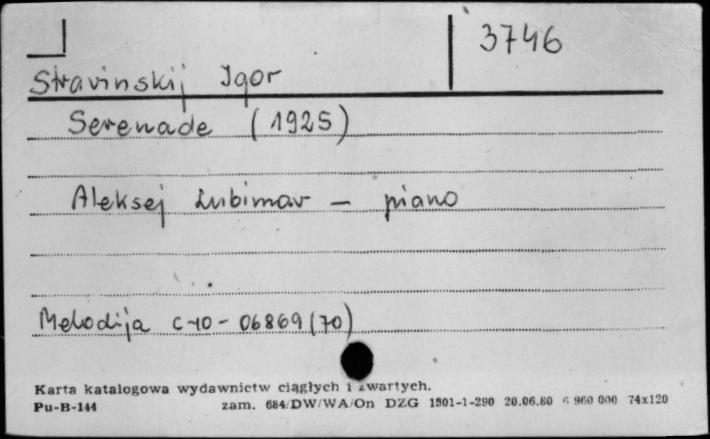 3746
Stravinskij Igor
Serenade (1925)
Aleksej Lubimov — piano
Melodija C-10-06869(70)
Karta katalogowa wydawnictw ciągłych i zwartych.
Pu-B-144 zam. 684/DW/WA/On DZG 1501-1-290 20.06.80 6 960 000 74x120